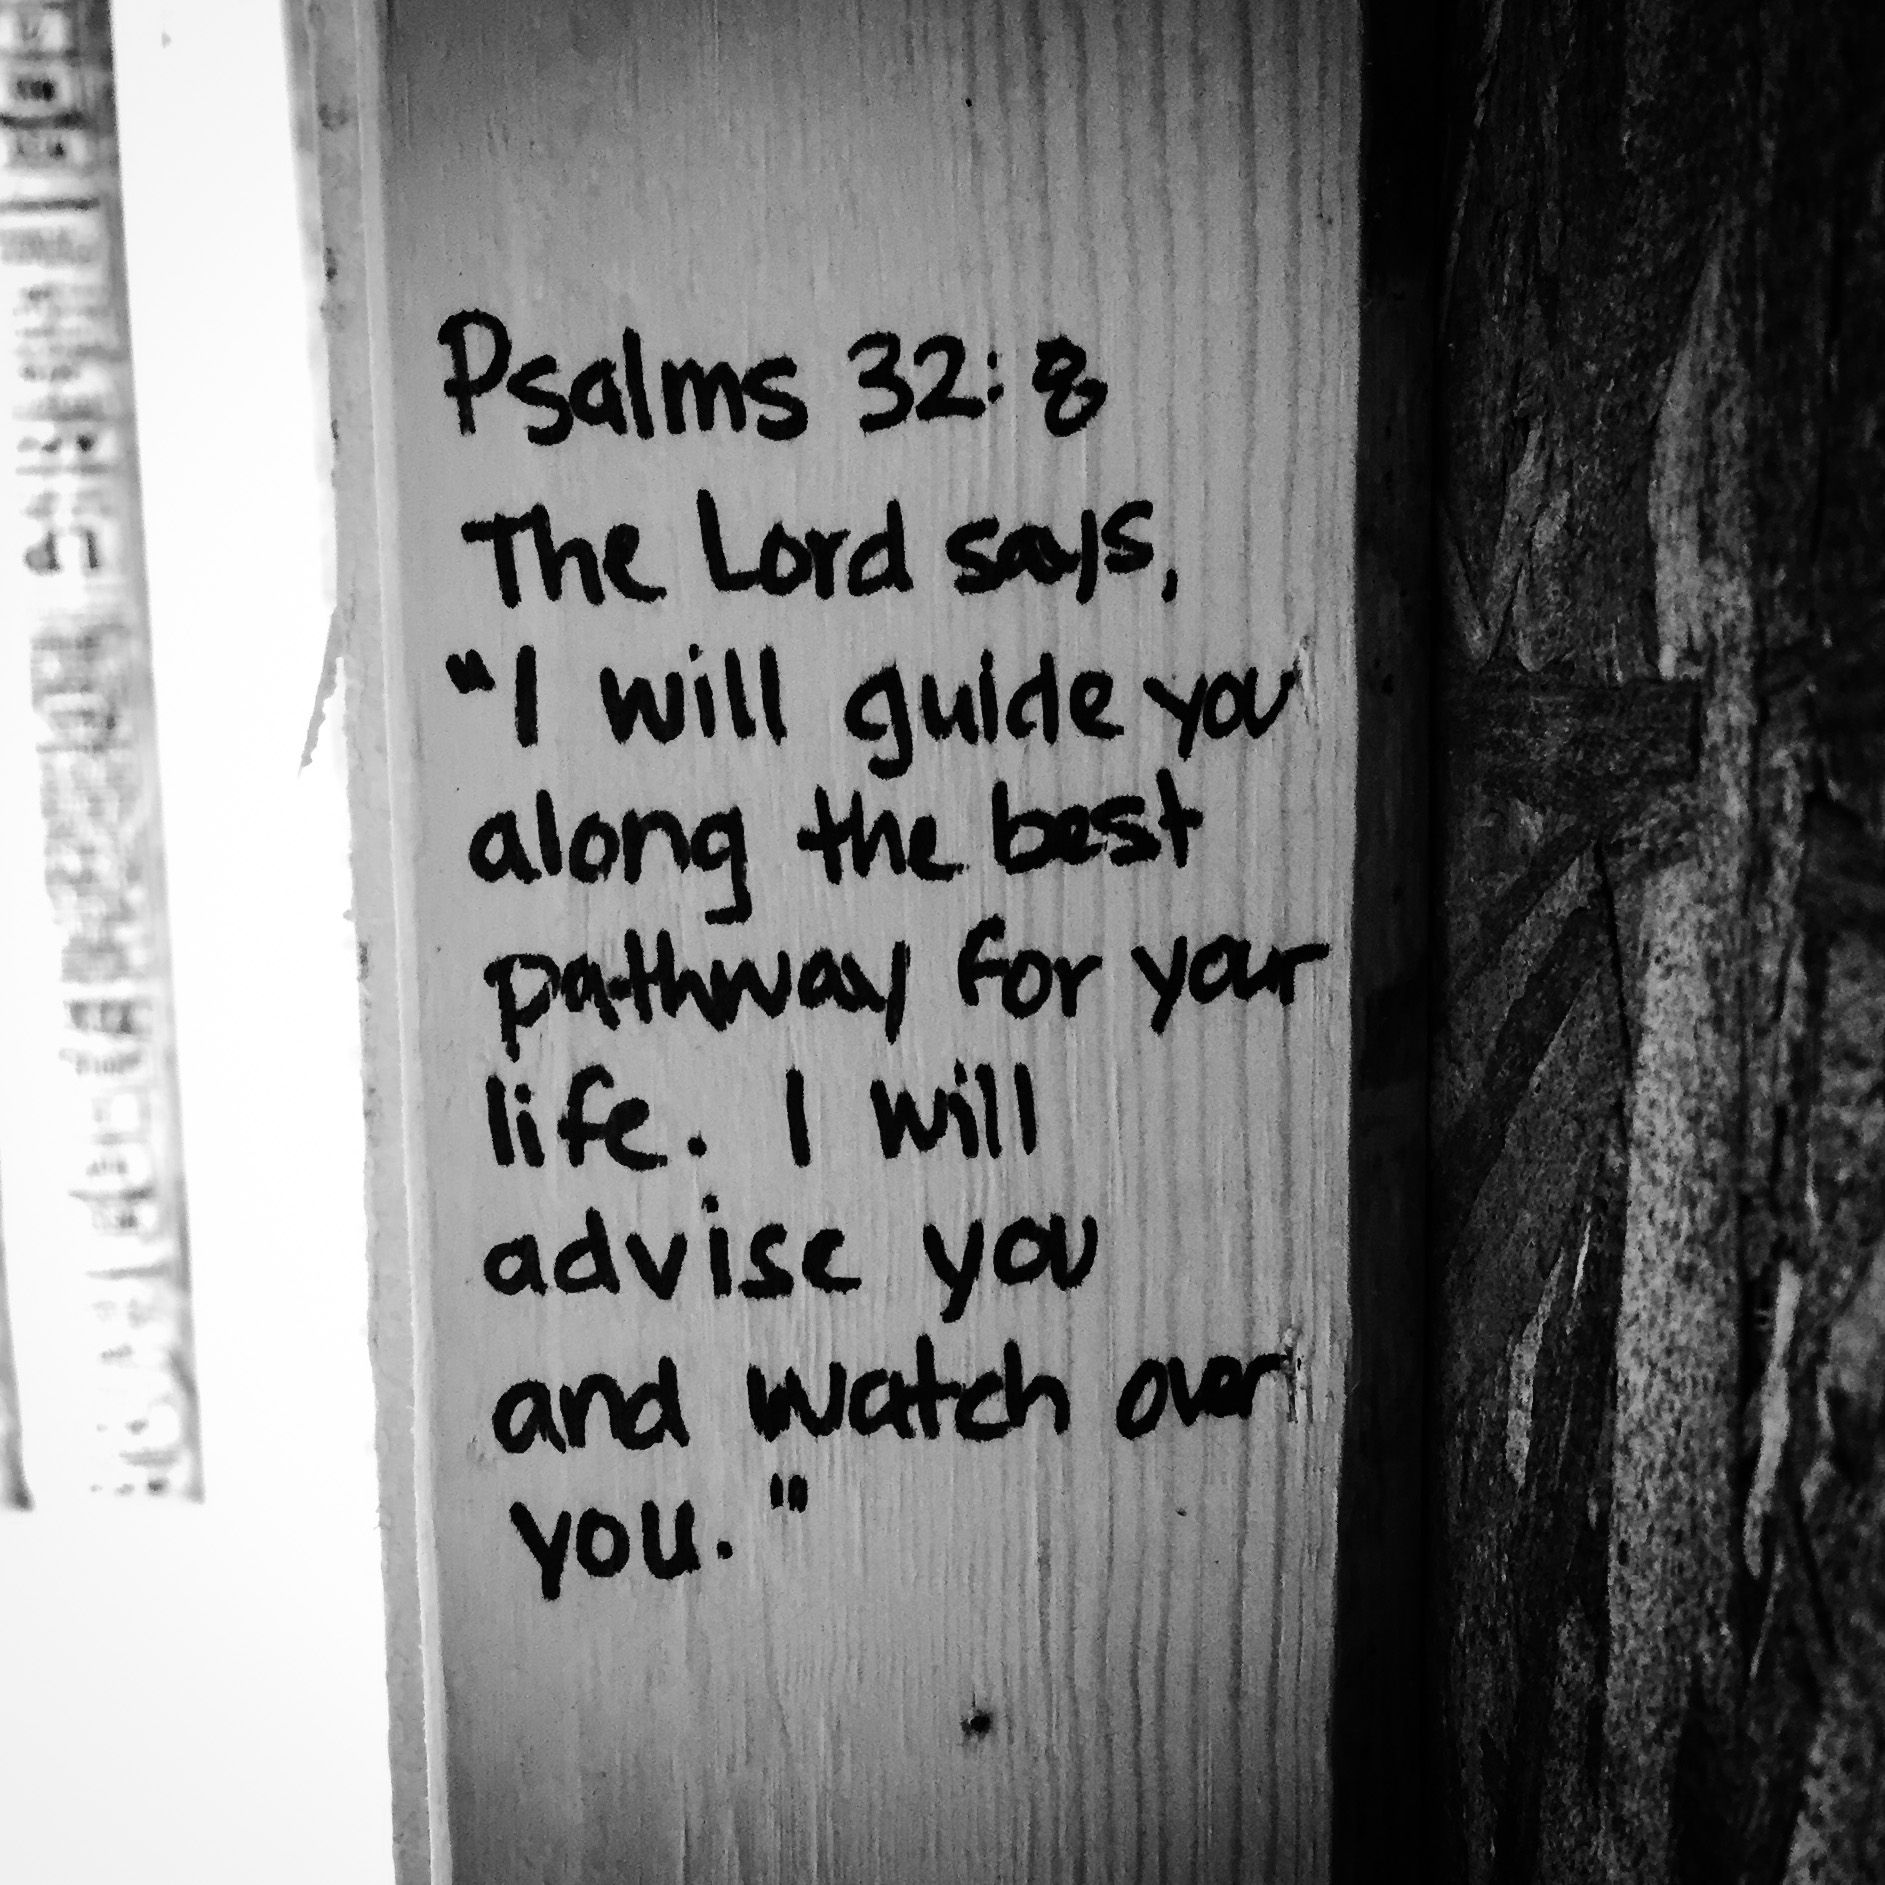 Psalms 32:8
The Lord says,
"I will guide you
along the best
pathway for your
life. I will
advise you
and watch over
you."